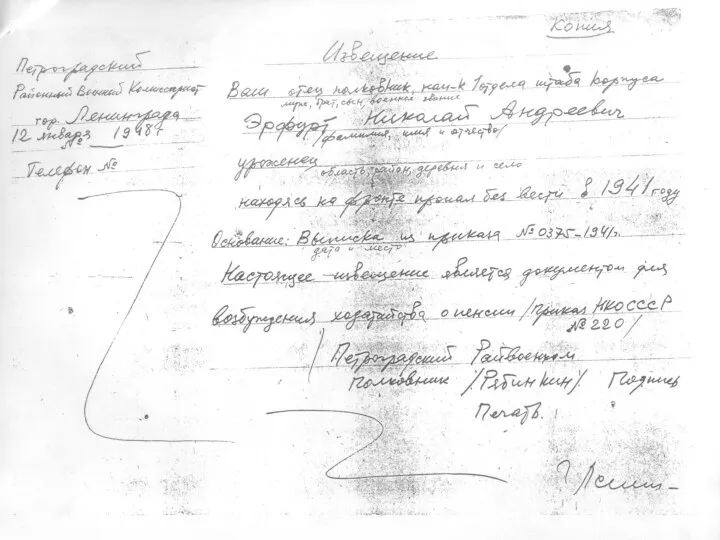 Копия
Петроградский
Районный Военный Комиссариат
гор. Ленинграда
12 января 1948г
№
Телефон №
Извещение
Ваш отец полковник, нач-к 1 отдела штаба корпуса
муж, брат, сын, военное звание
Эрфурт Николай Андреевич
/фамилия, имя и отчество/
уроженец
область, район, деревня и село
находясь на фронте пропал без вести в 1941 году
Основание: Выписка из приказа № 0375-1941г.
дата и место
Настоящее извещение является документом для
возбуждения ходатайства о пенсии /приказ НКО СССР
№ 220/
/Петроградский Райвоенком
Полковник /Рябинкин/. Подпись
Печать.